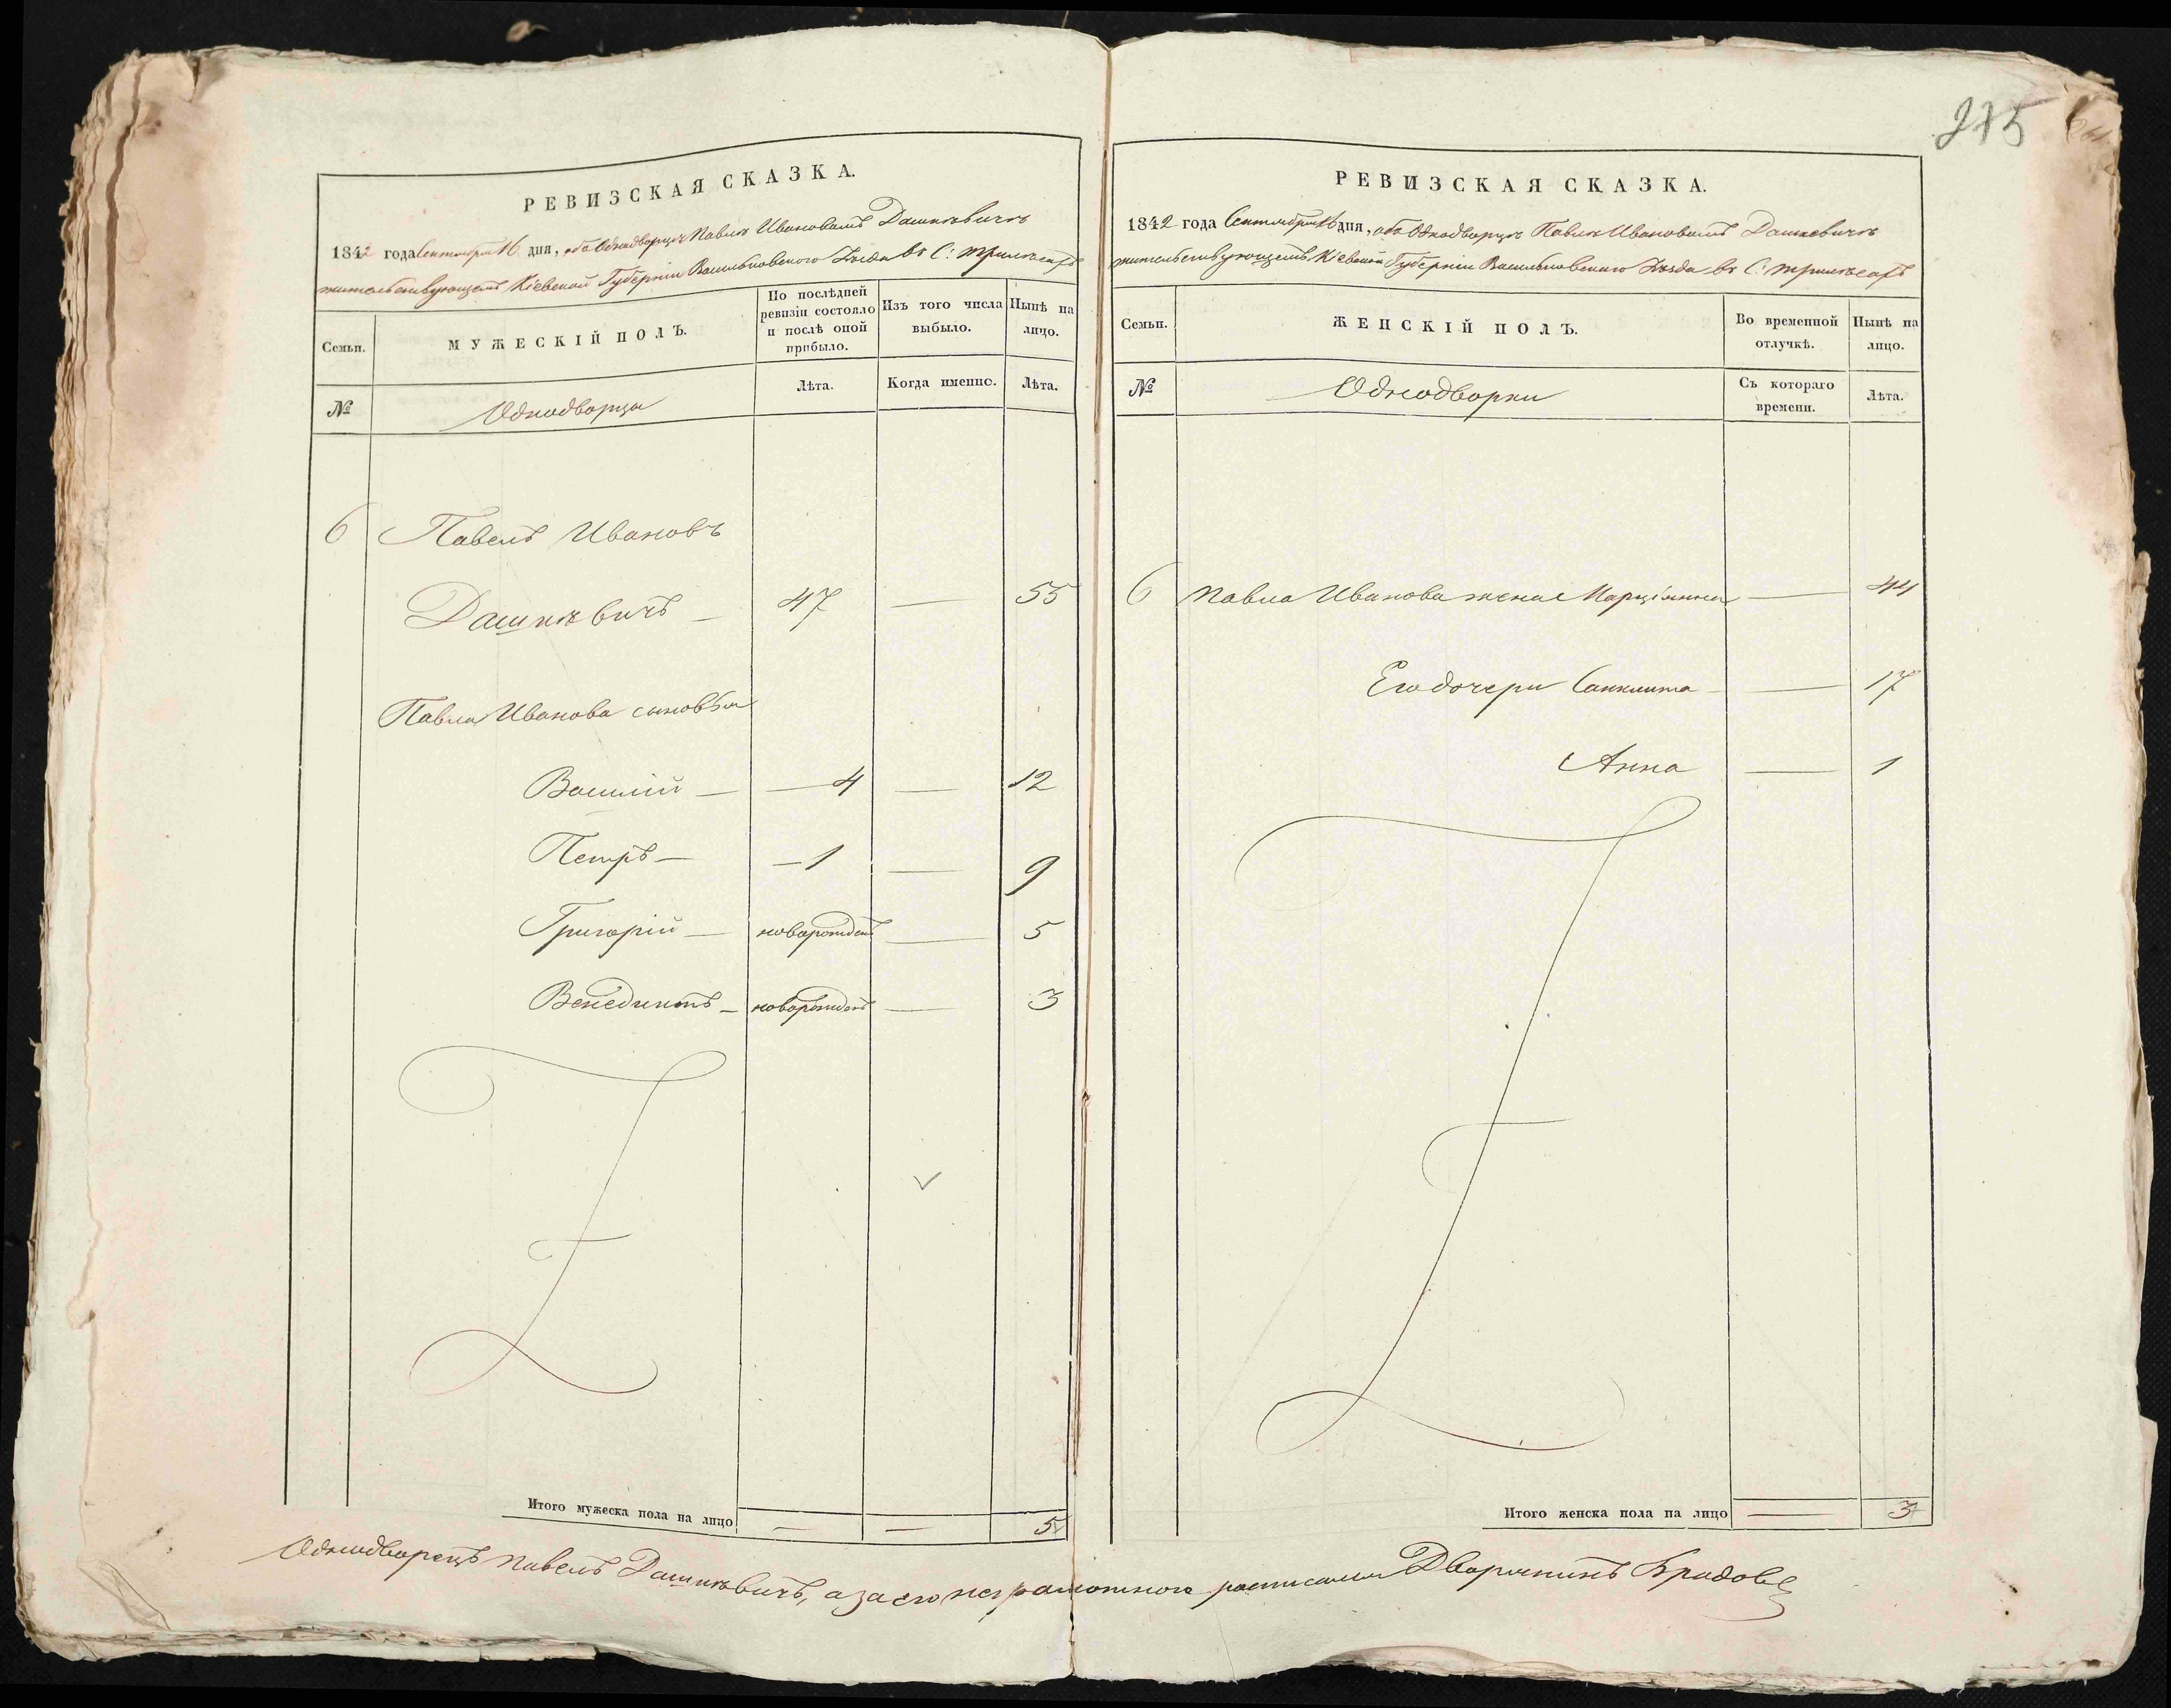 275
РЕВИЗСКАЯ СКАЗКА.
1842 года Сентября 16 дня, объ Однодворцѣ Павлѣ Ивановомъ Дашкѣвичѣ
жительствующемъ Кіевской Губерніи Васильковского Уѣзда въ С: Трилѣсахъ
Семьи.
МУЖЕСКІЙ ПОЛЪ.
По послѣдней ревизіи состояло и послѣ оной прибыло.
Изъ того числа выбыло.
Нынѣ на лицо.
№
Однодворцы
Лѣта.
Когда именно.
Лѣта.
6 Павелъ Ивановъ
Дашкѣвичъ — 47 — 55
Павла Иванова сыновья
Василій — — 4 — 12
Петръ — — 1 — 9
Григорій — новорожден — 5
Венедиктъ — новорожден — 3
Итого мужеска пола на лицо — — 5
РЕВИЗСКАЯ СКАЗКА.
1842 года Сентября 16 дня, объ Однодворцѣ Павлѣ Ивановомъ Дашкевичѣ
жительствующемъ Кіевской Губерніи Васильковского Уѣзда въ С: Трилѣсахъ
Семьи.
ЖЕНСКІЙ ПОЛЪ.
Во временной отлучкѣ.
Нынѣ на лицо.
№
Однодворки
Съ котораго времени.
Лѣта.
6 Павла Иванова жена Марціянна — 44
Его дочери — 17
Анна — 1
Итого женска пола на лицо — 3
Однодворецъ Павелъ Дашкѣвичъ, а за его неграмотного росписался Дворянинъ